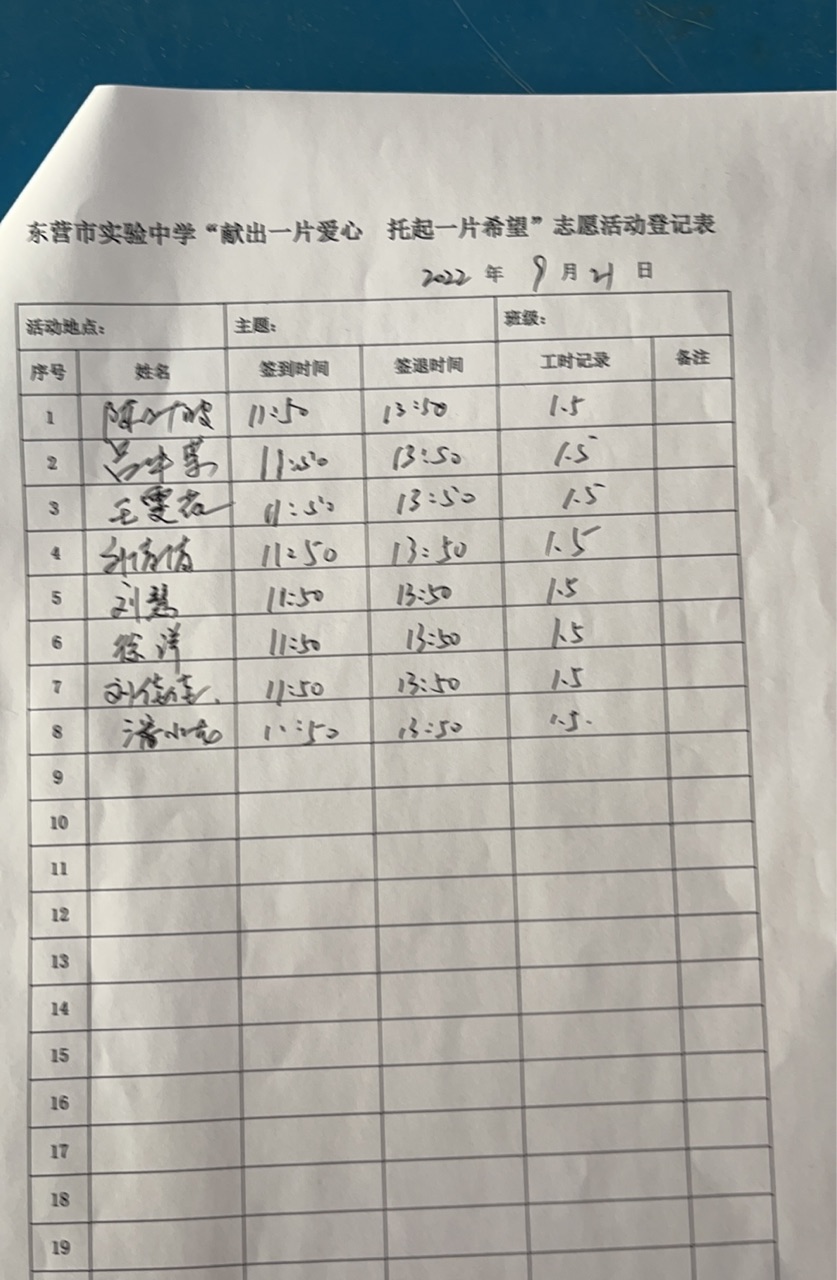 东营市实验中学“献出一片爱心 托起一片希望”志愿活动登记表
2022 年 9 月 21 日
活动地点: 主题: 班级:
序号 姓名 签到时间 签退时间 工时记录 备注
1 11:50 13:50 1.5
2 11:50 13:50 1.5
3 11:50 13:50 1.5
4 11:50 13:50 1.5
5 刘慧 11:50 13:50 1.5
6 徐洋 11:50 13:50 1.5
7 刘佳佳 11:50 13:50 1.5
8 11:50 13:50 1.5
9
10
11
12
13
14
15
16
17
18
19